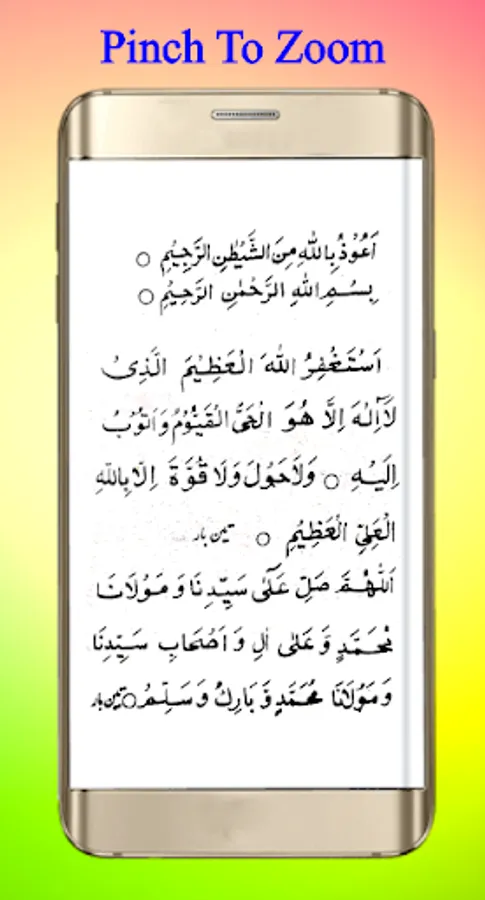 Pinch To Zoom
اَعُوْذُ بِاللّٰهِ مِنَ الشَّيْطٰنِ الرَّجِيْمِ ○
بِسْمِ اللّٰهِ الرَّحْمٰنِ الرَّحِيْمِ ○
اَسْتَغْفِرُ اللّٰهَ الْعَظِيْمَ الَّذِىْ
لَآاِلٰهَ اِلَّا هُوَ الْحَىُّ الْقَيُّوْمُ وَاَتُوْبُ
اِلَيْهِ ○ وَلَاحَوْلَ وَلَا قُوَّةَ اِلَّا بِاللّٰهِ
الْعَلِىِّ الْعَظِيْمِ ○ تین بار
اَللّٰهُمَّ صَلِّ عَلٰى سَيِّدِنَا وَ مَوْلَانَا
مُحَمَّدٍ وَّ عَلٰى اٰلِ وَ اَصْحَابِ سَيِّدِنَا
وَ مَوْلَانَا مُحَمَّدٍ وَّ بَارِكْ وَ سَلِّمْ ○ تین بار